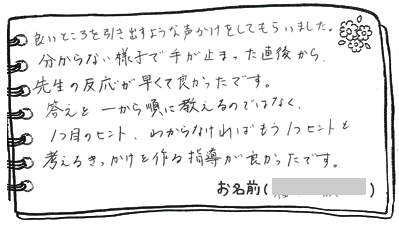 良いところを引き出すような声かけをしてもらいました。
分からない様子で手が止まった直後から、
先生の反応が早くて良かったです。
答えを一から順に教えるのではなく、
1つ目のヒント、わからなければもう1つヒントと
考えるきっかけを作る指導が良かったです。
お名前( )